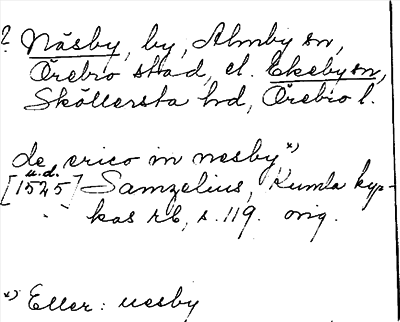 ? Näsby, by, Almby sn,
Örebro stad, el. Ekeby sn,
Sköllersta hd, Örebro l.
de erico in nesby*)
u.d.
[1525] Samzelius, Kumla kyr-
kas rb, s. 119. orig.
*) Eller: uesby